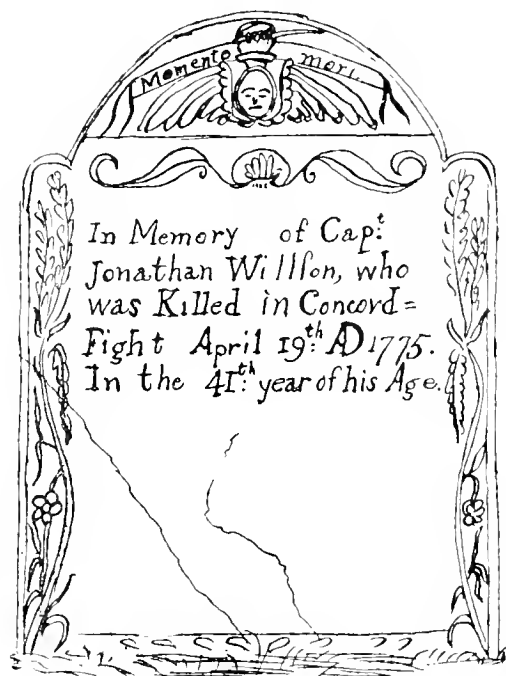 Momento mori.
In Memory of Capᵗ:
Jonathan Willſon, who
was Killed in Concord=
Fight April 19ᵗʰ: AD 1775.
In the 41ᵗʰ: year of his Age.